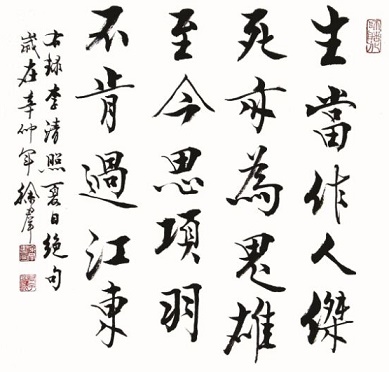 生當作人傑
死亦為鬼雄
至今思項羽
不肯過江東
右錄李清照夏日絕句
歲在辛卯年徐